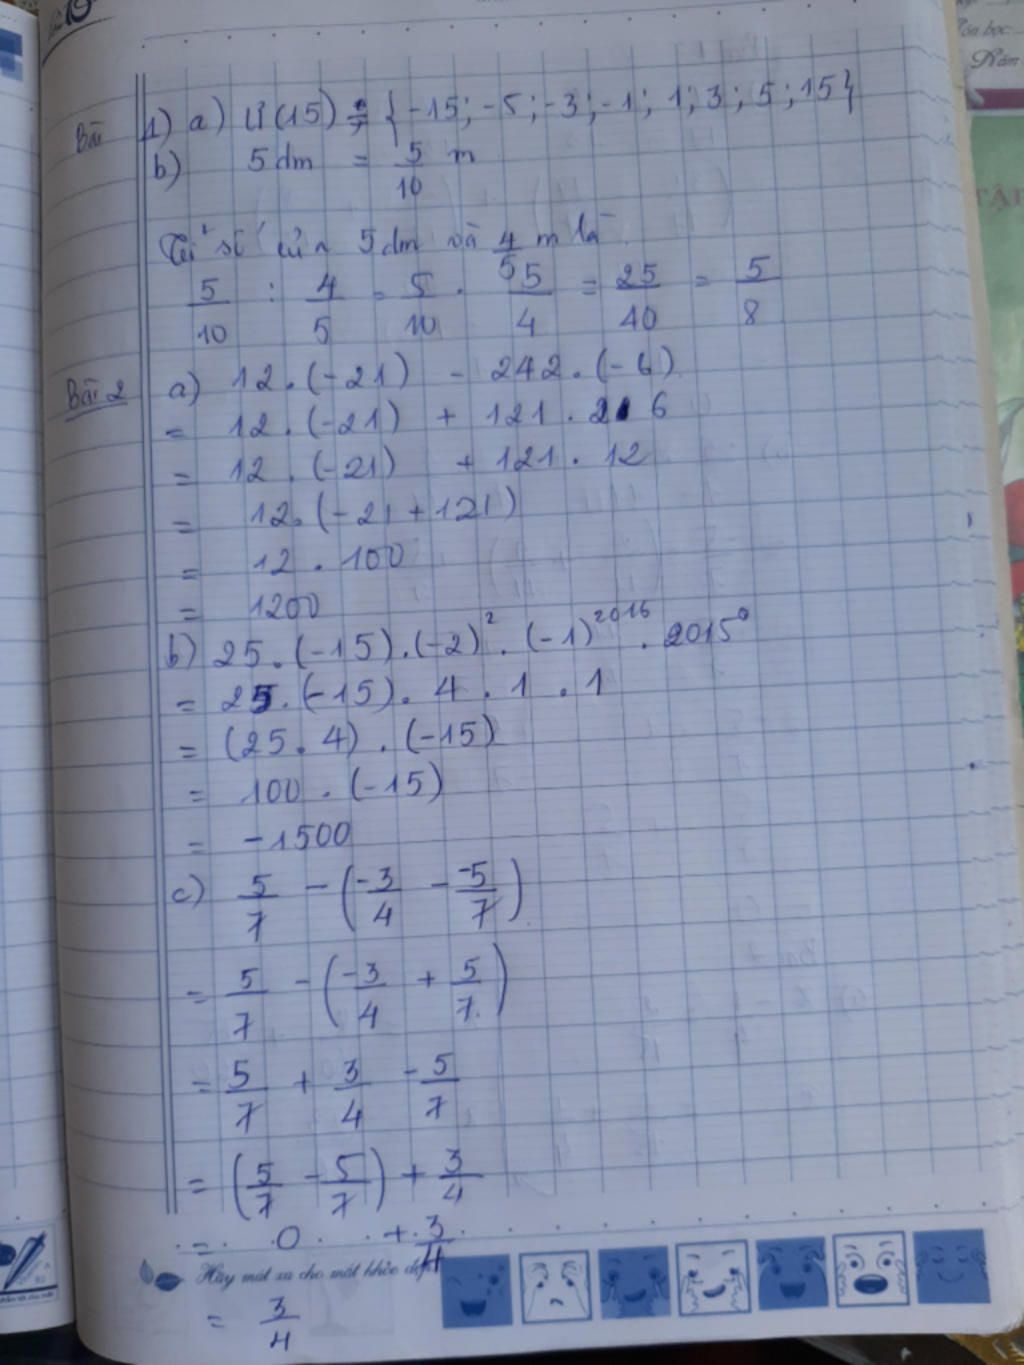 Bài 1) a) Ư(15) = {-15; -5; -3; -1; 1; 3; 5; 15}
b) 5 dm = 5/10 m
Tỉ số của 5 dm và 4/5 m là
5/10 : 4/5 = 5/10 . 5/4 = 25/40 = 5/8
Bài 2 a) 12 . (-21) - 242 . (-6)
= 12 . (-21) + 121 . 2 . 6
= 12 . (-21) + 121 . 12
= 12 . (-21 + 121)
= 12 . 100
= 1200
b) 25 . (-15) . (-2)² . (-1)²⁰¹⁶ . 2015⁰
= 25 . (-15) . 4 . 1 . 1
= (25 . 4) . (-15)
= 100 . (-15)
= -1500
c) 5/7 - (-3/4 - -5/7)
= 5/7 - (-3/4 + 5/7)
= 5/7 + 3/4 - 5/7
= (5/7 - 5/7) + 3/4
= 0 + 3/4
Hãy mát xa cho mắt khỏe đẹp
= 3/4